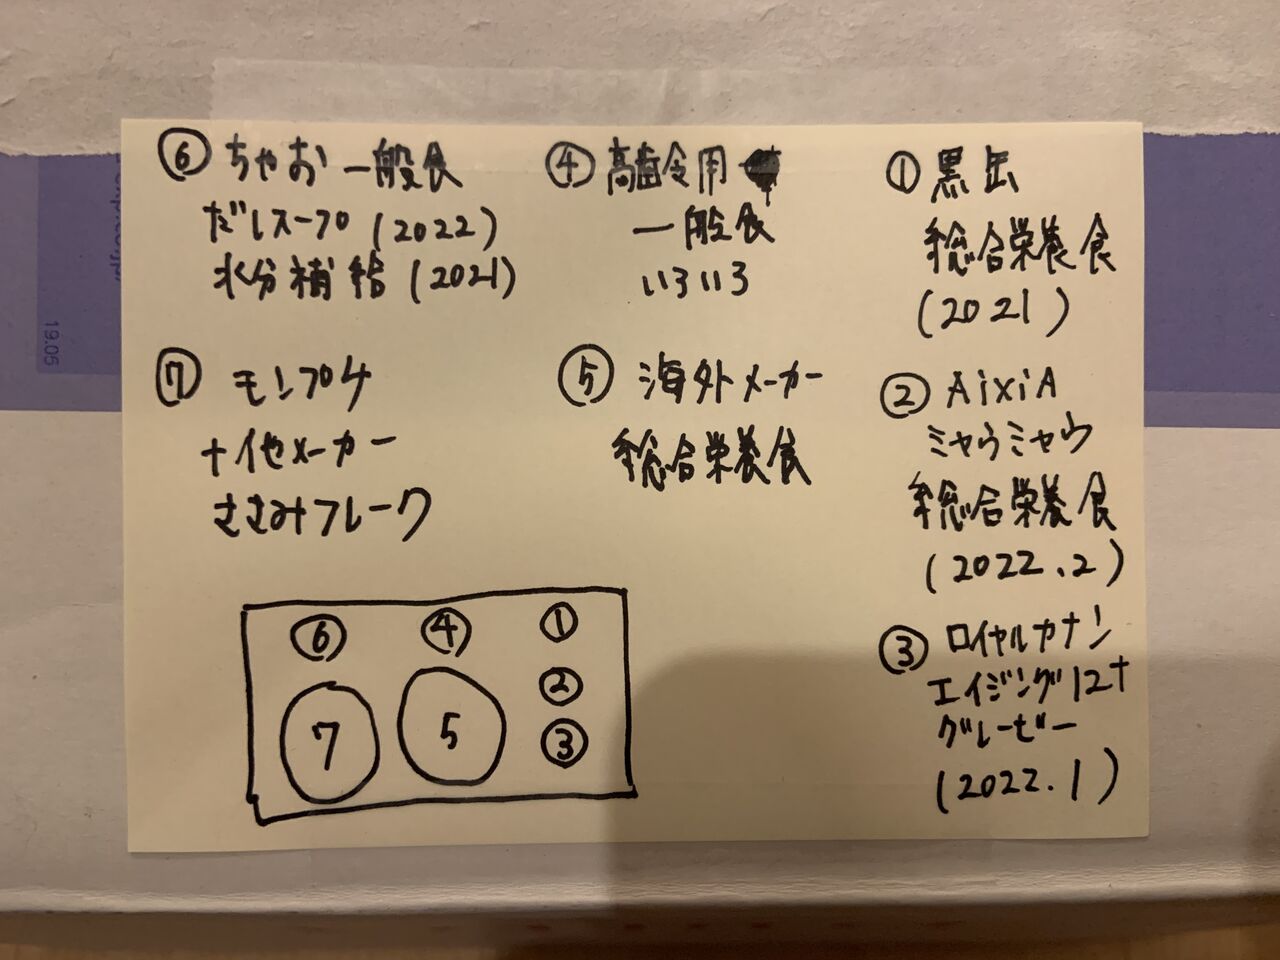 ⑥ ちゃお 一般食
だしスープ (2022)
水分補給 (2021)
⑦ モンプチ
+他メーカー
ささみフレーク
④ 高歯令用
一般食
いろいろ
⑤ 海外メーカー
総合栄養食
① 黒缶
総合栄養食
(2021)
② AixiA
ミャウミャウ
総合栄養食
(2022.2)
③ ロイヤルカナン
エイジング12+
グレービー
(2022.1)
⑥ ④ ①
②
7 5 ③
19.05